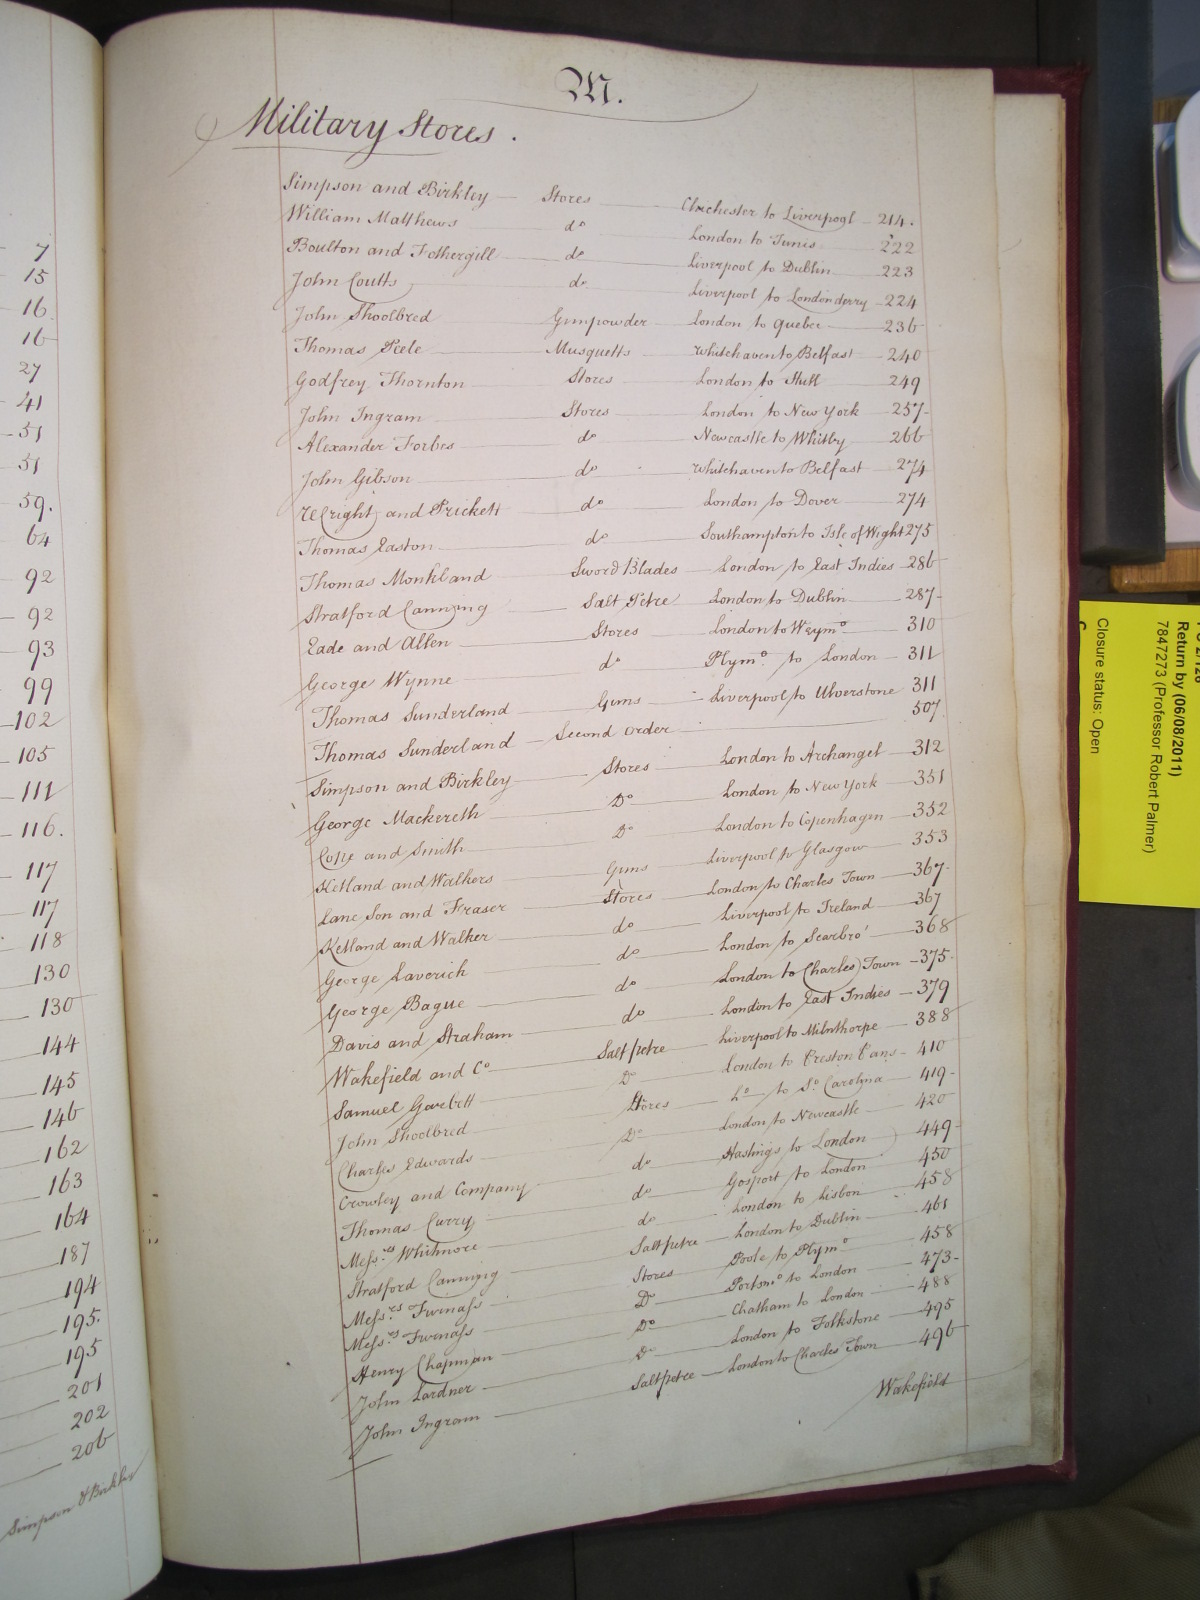 7
15
16.
16
27
41
51
51
59.
64
92
92
93
99
102
105
111
116.
117
117
118
130
130
144
145
146
162
163
164
187
194
195.
195
201
202
206
Simpson & Birkley
M.
Military Stores.
Simpson and Birkley Stores Chichester to Liverpool 214.
William Matthews do London to Tunis 222
Boulton and Fothergill do Liverpool to Dublin 223
John Coutts do Liverpool to Londonderry 224
John Shoolbred Gunpowder London to Quebec 236
Thomas Peele Musquetts Whitehaven to Belfast 240
Godfrey Thornton Stores London to Hull 249
John Ingram Stores London to New York 257
Alexander Forbes do Newcastle to Whitby 266
John Gibson do Whitehaven to Belfast 274
Wright and Prickett do London to Dover 274
Thomas Easton do Southampton to Isle of Wight 275
Thomas Monkland Sword Blades London to East Indies 286
Stratford Canning Salt Petre London to Dublin 287
Eade and Allen Stores London to Weymo 310
George Wynne do Plymo to London 311
Thomas Sunderland Guns Liverpool to Ulverstone 311
Thomas Sunderland Second Order 507
Simpson and Birkley Stores London to Archangel 312
George Mackereth Do London to New York 351
Cope and Smith Do London to Copenhagen 352
Ketland and Walkers Guns Liverpool to Glasgow 353
Lane Son and Fraser Stores London to Charles Town 367
Ketland and Walker do Liverpool to Ireland 367
George Laverich do London to Scarbro' 368
George Bague do London to Charles Town 375
Davis and Straham do London to East Indies 379
Wakefield and Co Saltpetre Liverpool to Milnthorpe 388
Samuel Garbett Do London to Preston Pans 410
John Shoolbred Stores Lo to So Carolina 419
Charles Edwards Do London to Newcastle 420
Crowley and Company do Hastings to London 449
Thomas Curry do Gosport to London 450
Messrs Whitmore do London to Lisbon 458
Stratford Canning Saltpetre London to Dublin 461
Messrs Furnass Stores Poole to Plymo 458
Messrs Furnass Do Portsmo to London 473
Henry Chapman Do Chatham to London 488
John Lardner Do London to Folkstone 495
John Ingram Saltpetre London to Charles Town 496
Wakefield
Return by (06/08/2011)
7847273 (Professor Robert Palmer)
Closure status: Open